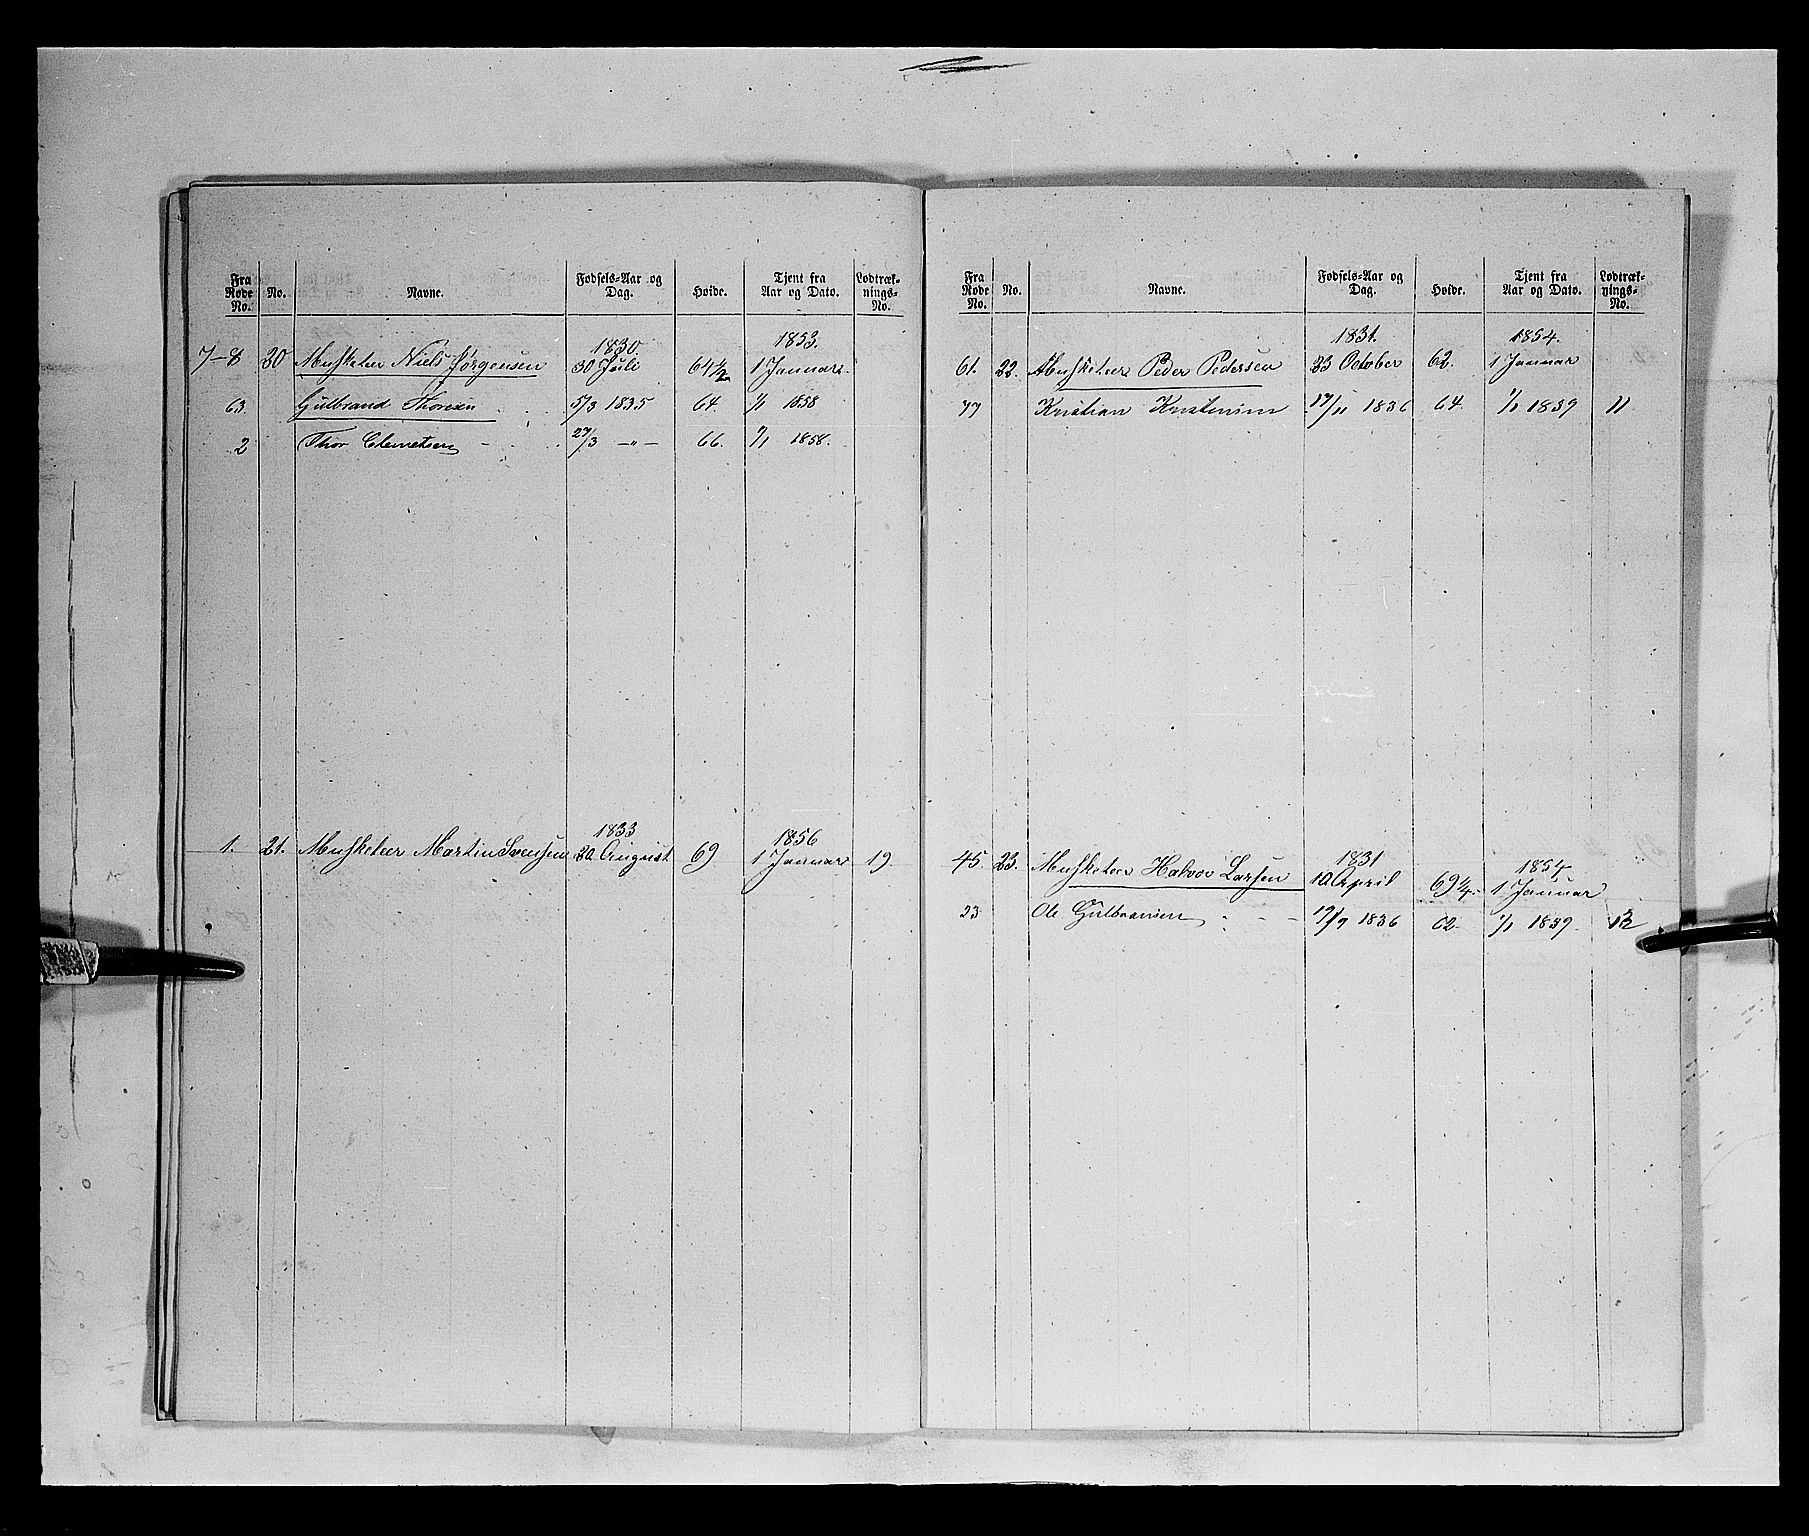 Fra Rode No. No. Navne. Fødsels-Aar og Dag. Høide. Tjent fra Aar og Dato. Lodtræknings-No.
1830. 1853.
7-8 20 Musketeer Niels Jørgensen 30 Juli 64½ 1 Januar
63 Gulbrand Thoresen 5/3 1835 64. 1/1 1858
2 Thor Clemetsen 27/3 —"— 66. 1/1 1858.
1833 1856
1. 21. Musketeer Martin Svensen 20 August 69 1 Januar 19
Fra Rode No. No. Navne. Fødsels-Aar og Dag. Høide. Tjent fra Aar og Dato. Lodtræknings-No.
1831. 1854.
61. 22. Musketeer Peder Pedersen 23 October 62. 1 Januar
77 Kristian 17/11 1836 64. 1/1 1859 11
1831 1854
45. 23. Musketeer Halvor Larsen 10 April 69¼ 1 Januar
23 Ole Gulbransen 17/7 1836 62. 1/1 1859. 12